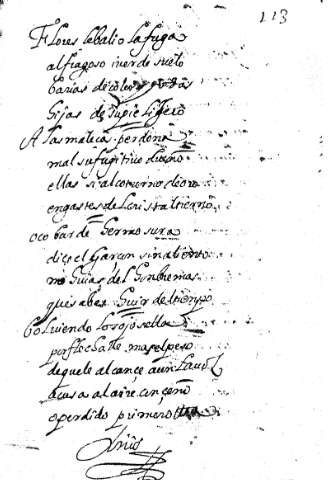 113
Flores le balio la fuga
al fragoso inerde suelo
barias de colores todas
hijas de su pie ligero
A las malica perdona
mal su fugitivo dueño
ellas si al coturno de oro
engastes del cristal tierno
o cobarde hermosura
diçe el Garçon sin aliento
no huias del hombre mas
que sabe huir del tiempo
bolviendo los ojos ella
por flechalle mas el peso
de que le alcançe aun Laurel
acusa al aire con ceño
o perdido primero